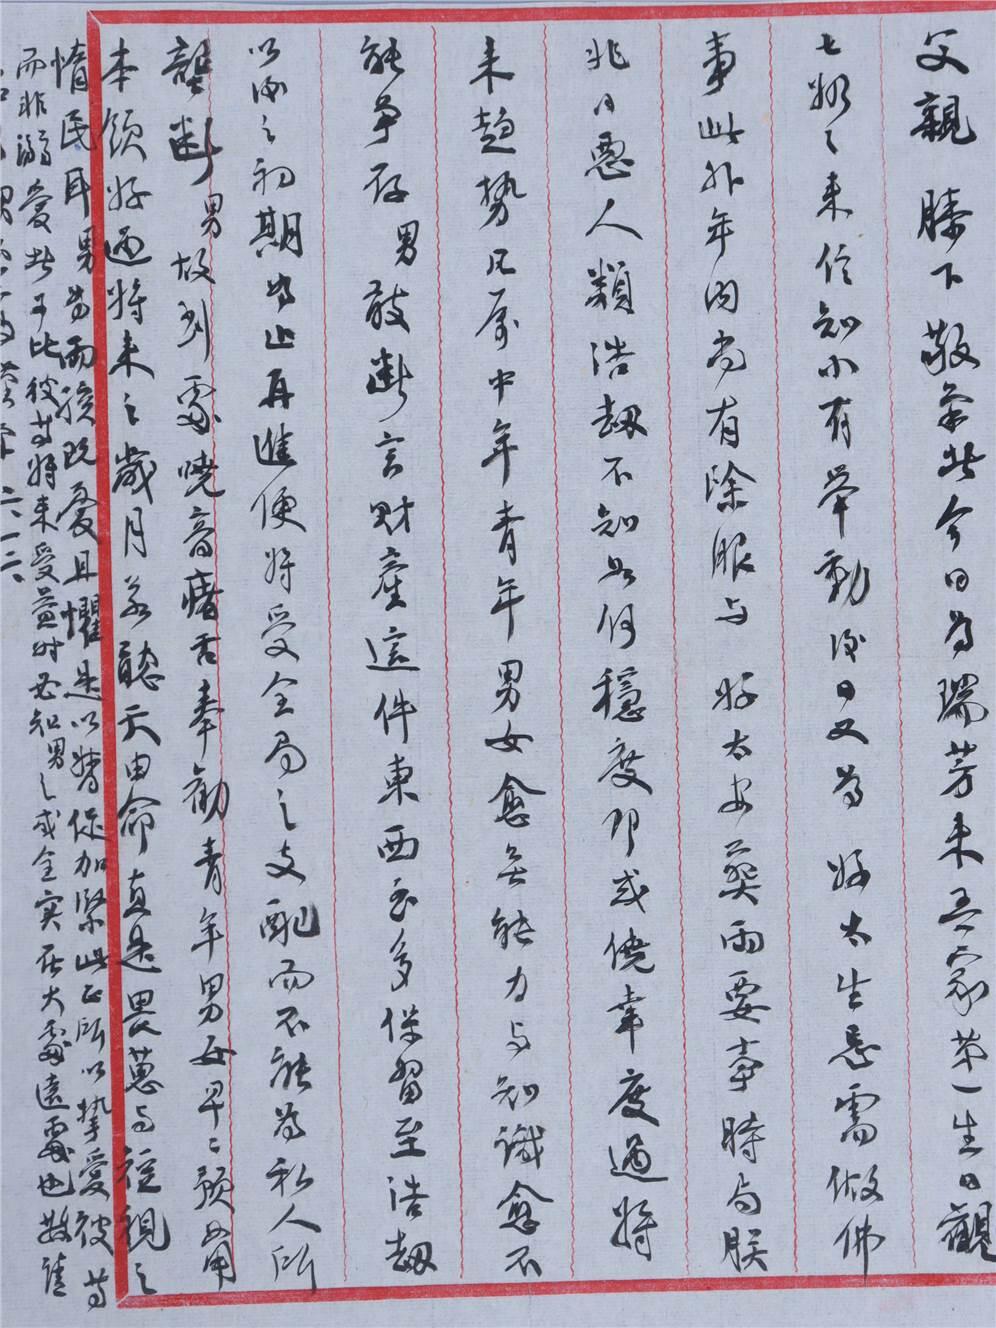 父親 膝下敬稟者今日為瑞芳來吾家第一生日觀
七嫂之來信知小有舉動後日又為好太生忌需做佛
事此外年內尚有除服与好太安葬兩要事時局朕
兆日惡人類浩劫不知如何穩度即或僥幸度過將
來趨勢凡屬中年青年男女愈無能力与知識愈不
能爭存男敢斷言財產這件東西至多保留至浩劫
以後之初期為止再進便將受全局之支配而不能為私人所
龔斷男故到處曉音瘏舌奉勸青年男女早早預備
本領好過將來之歲月若聽天由命真是畏葸与短視之
惰民耳男為兩孩既憂且懼是以督促加緊此正所以摯愛彼等
而非溺愛者可比彼等將來受益時必知男之成全實在大處遠處也敬請
六、一二、